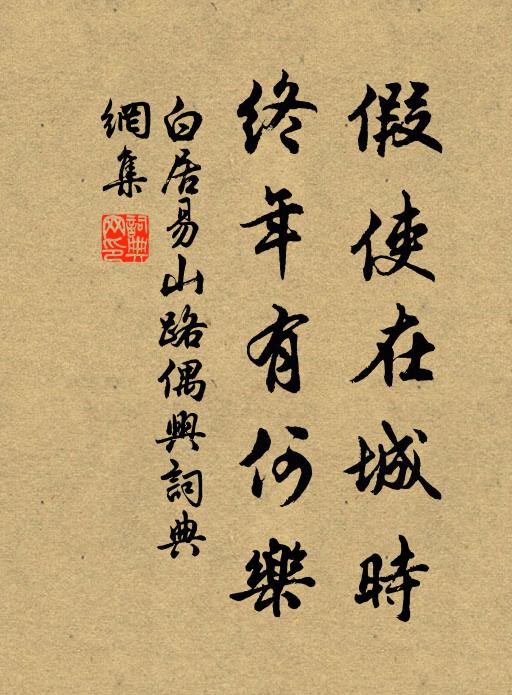 假使在城時
終年有何樂
白居易山路偶興詞典
網集
詞典
网印